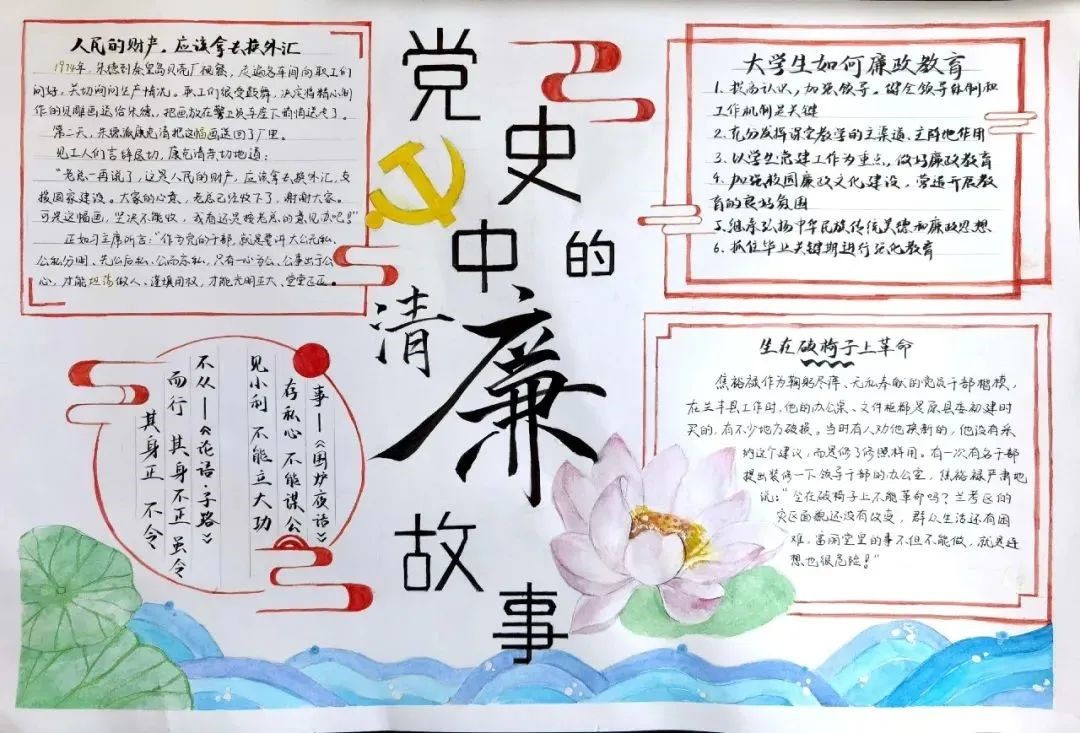 党
史
中的
清廉
故
事
人民的财产,应该拿去换外汇
1974年,朱德到秦皇岛贝壳厂视察,走遍各车间向职工们
问好,关切询问生产情况。职工们很受鼓舞,决定将精心制
作的贝雕画送给朱德,把画放在警卫员车座下悄悄送走了。
第二天,朱德派康克清把这幅画送回了厂里。
见工人们言辞恳切,康克清亲切地道:
“老总一再说了,这是人民的财产,应该拿去换外汇,支
援国家建设。大家的心意,老总已经收下了,谢谢大家。
可是这幅画,坚决不能收,我看还是按老总的意见办吧!”
正如习主席所言:“作为党的干部,就是要讲大公无私、
公私分明、先公后私、公而忘私,只有一心为公、公事出于公
心,才能坦荡做人、谨慎用权,才能光明正大、堂堂正正。
大学生如何廉政教育
1.提高认识,加强领导。健全领导体制和
工作机制是关键
2.充分发挥课堂教学的主渠道、主阵地作用
3.以学生党建工作为重点,做好廉政教育
4.加强校园廉政文化建设,营造开展教
育的良好氛围
5.继承弘扬中华民族传统美德和廉政思想
6.抓住毕业关键期进行强化教育
其身正 不令
而行 其身不正 虽令
不从——《论语·子路》
见小利 不能立大功
存私心 不能谋公
事——《围炉夜话》
坐在破椅子上革命
焦裕禄作为鞠躬尽瘁、无私奉献的党员干部楷模,
在兰考县工作时,他的办公桌、文件柜都是原县委初建时
买的,有不少地方破损。当时有人劝他换新的,他没有采
纳这个建议,而是修了修照样用。有一次有名干部
提出装修一下领导干部的办公室,焦裕禄严肃地
说:“坐在破椅子上不能革命吗?兰考区的
灾区面貌还没有改变,群众生活还有困
难,富丽堂皇的事不但不能做,就是连
想也很危险!”